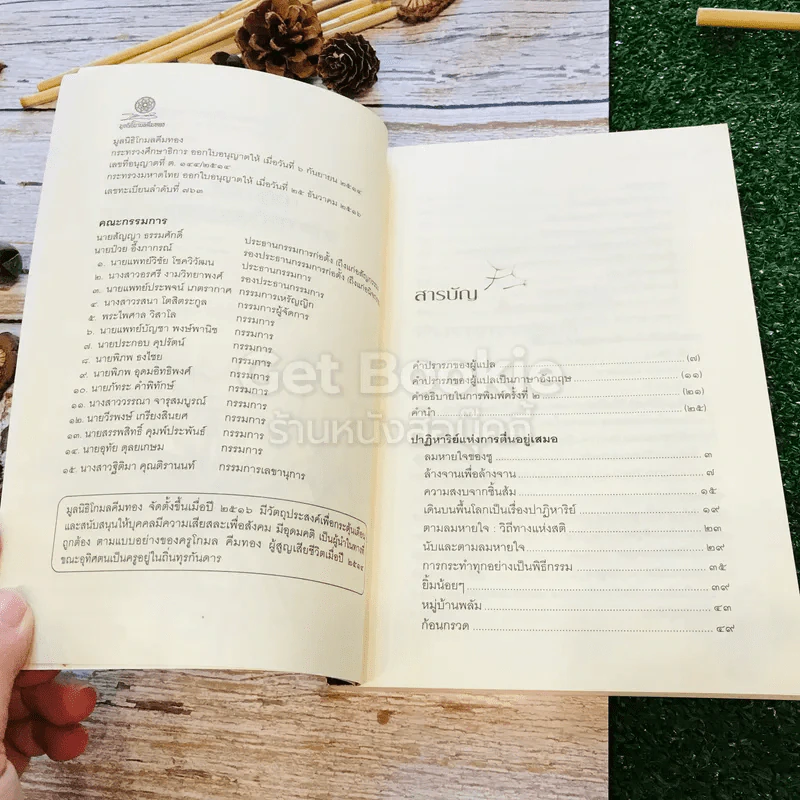 มูลนิธิโกมลคีมทอง
มูลนิธิโกมลคีมทอง
กระทรวงศึกษาธิการ ออกใบอนุญาตให้ เมื่อวันที่ ๖ กันยายน ๒๕๑๔
เลขที่อนุญาตที่ ต. ๑๔๔/๒๕๑๔
กระทรวงมหาดไทย ออกใบอนุญาตให้ เมื่อวันที่ ๒๕ ธันวาคม ๒๕๑๖
เลขทะเบียนลำดับที่ ๗๖๓
คณะกรรมการ
นายสัญญา ธรรมศักดิ์ ประธานกรรมการก่อตั้ง (ถึงแก่อสัญกรรม)
นายป๋วย อึ๊งภากรณ์ รองประธานกรรมการก่อตั้ง
๑. นายแพทย์วิชัย โชควิวัฒน ประธานกรรมการ
๒. นางสาวอรศรี งามวิทยาพงศ์ รองประธานกรรมการ
๓. นายแพทย์ประพจน์ เภตรากาศ กรรมการเหรัญญิก
๔. นางสาวรสนา โตสิตระกูล กรรมการผู้จัดการ
๕. พระไพศาล วิสาโล กรรมการ
๖. นายแพทย์บัญชา พงษ์พานิช กรรมการ
๗. นายประกอบ คุปรัตน์ กรรมการ
๘. นายพิภพ ธงไชย กรรมการ
๙. นายพิภพ อุดมอิทธิพงศ์ กรรมการ
๑๐. นายภัทระ คำพิทักษ์ กรรมการ
๑๑. นางสาววรรณา จารุสมบูรณ์ กรรมการ
๑๒. นายวีรพงษ์ เกรียงสินยศ กรรมการ
๑๓. นายสรรพสิทธิ์ คุมพ์ประพันธ์ กรรมการ
๑๔. นายอุทัย ดุลยเกษม กรรมการ
๑๕. นางสาวฐิติมา คุณติรานนท์ กรรมการเลขานุการ
มูลนิธิโกมลคีมทอง จัดตั้งขึ้นเมื่อปี ๒๕๑๖ มีวัตถุประสงค์เพื่อกระตุ้นเตือน
และสนับสนุนให้บุคคลมีความเสียสละเพื่อสังคม มีอุดมคติ เป็นผู้นำในทางที่
ถูกต้อง ตามแบบอย่างของครูโกมล คีมทอง ผู้สูญเสียชีวิตเมื่อปี ๒๕๑๔
ขณะอุทิศตนเป็นครูอยู่ในถิ่นทุรกันดาร
สารบัญ
คำปรารภของผู้แปล (๗)
คำปรารภของผู้แปลเป็นภาษาอังกฤษ (๑๑)
คำอธิบายในการพิมพ์ครั้งที่ ๒ (๒๑)
คำนำ (๒๕)
ปาฏิหาริย์แห่งการตื่นอยู่เสมอ
ลมหายใจของซู ๓
ล้างจานเพื่อล้างจาน ๗
ความสงบจากชิ้นส้ม ๑๕
เดินบนพื้นโลกเป็นเรื่องปาฏิหาริย์ ๑๙
ตามลมหายใจ : วิถีทางแห่งสติ ๒๓
นับและตามลมหายใจ ๒๙
การกระทำทุกอย่างเป็นพิธีกรรม ๓๕
ยิ้มน้อยๆ ๓๙
หมู่บ้านพลัม ๔๓
ก้อนกรวด ๔๙
Get Bookie
ร้านหนังสือบุ๊คกี้